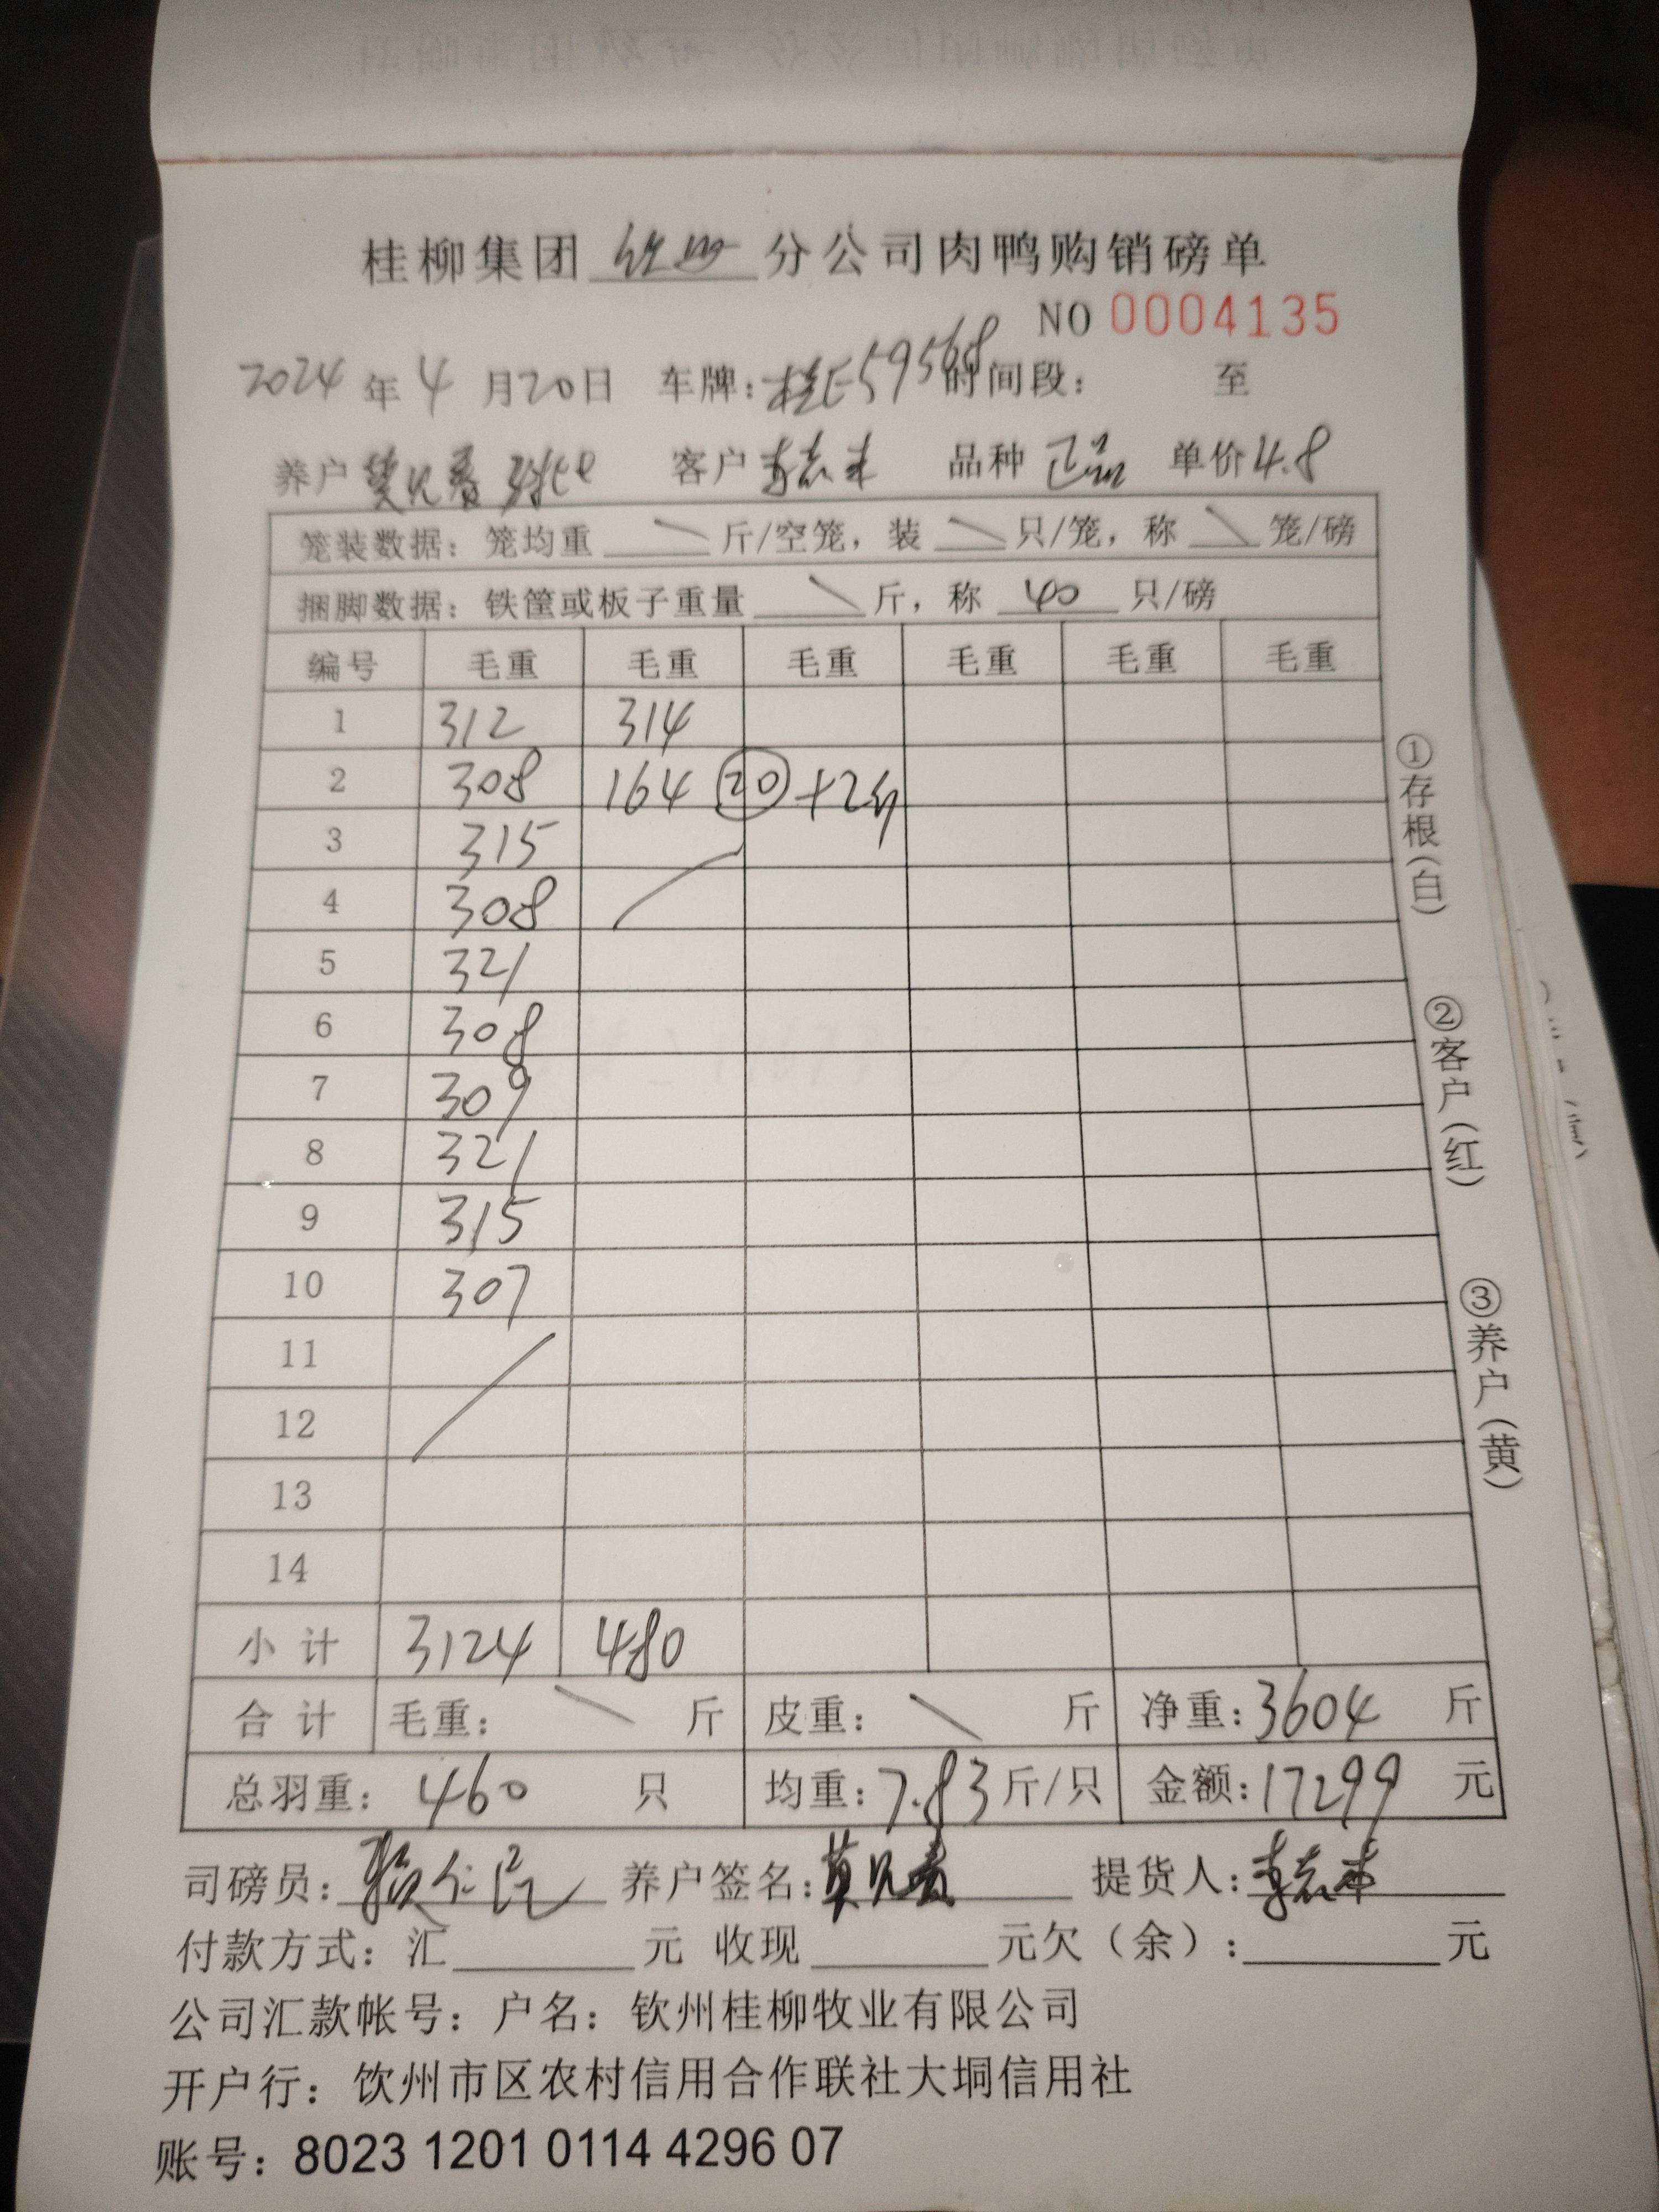 桂柳集团 钦州 分公司肉鸭购销磅单
NO 0004135
2024 年 4 月 20 日 车牌：桂E59568 时间段： 至
养户 客户 李志丰 品种 正品 单价 4.8
笼装数据：笼均重 斤/空笼，装 只/笼，称 笼/磅
捆脚数据：铁筐或板子重量 斤，称 40 只/磅
编号 毛重 毛重 毛重 毛重 毛重 毛重
1 312 314
2 308 164 ⑳ +2斤
3 315
4 308
5 321
6 308
7 309
8 321
9 315
10 307
11
12
13
14
小计 3124 480
合计 毛重： 斤 皮重： 斤 净重：3604 斤
总羽重：460 只 均重：7.83 斤/只 金额：17299 元
司磅员： 养户签名： 提货人：李志丰
付款方式：汇 元 收现 元欠（余）： 元
公司汇款帐号：户名：钦州桂柳牧业有限公司
开户行：饮州市区农村信用合作联社大垌信用社
账号：8023 1201 0114 4296 07
①存根（白）
②客户（红）
③养户（黄）